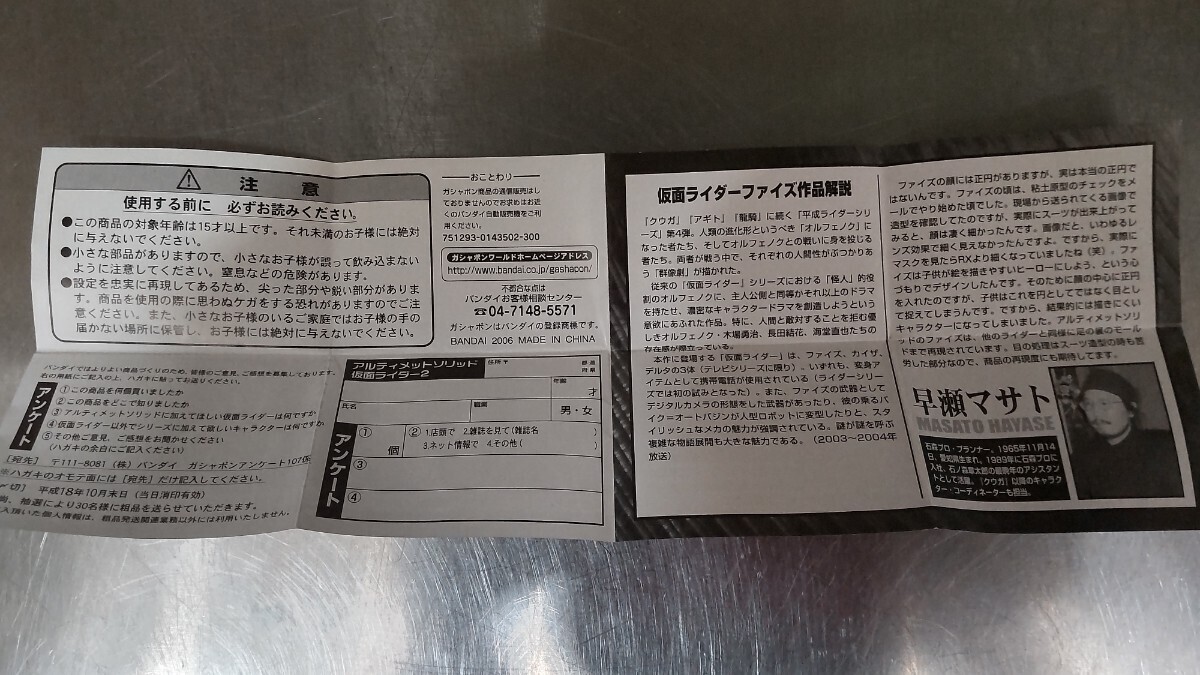 注 意
使用する前に 必ずお読みください。
●この商品の対象年齢は15才以上です。それ未満のお子様には絶対
に与えないでください。
●小さな部品がありますので、小さなお子様が誤って飲み込まない
ように注意してください。窒息などの危険があります。
●設定を忠実に再現してあるため、尖った部分や鋭い部分がありま
す。商品を使用の際に思わぬケガをする恐れがありますのでご注
意ください。また、小さなお子様のいるご家庭ではお子様の手の
届かない場所に保管し、お子様には絶対に与えないでください。
おことわり
ガシャポン商品の通信販売はし
ておりませんのでお求めはお近
くのバンダイ自動販売機をご利
用ください。
751293-0143502-300
ガシャポンワールドホームページアドレス
http://www.bandai.co.jp/gashacon/
不都合な点は
バンダイお客様相談センター
☎04-7148-5571
ガシャポンはバンダイの登録商標です。
BANDAI 2006 MADE IN CHINA
バンダイではよりよい商品づくりのため、皆様のご意見、ご感想を募集しております。
名の用紙にご記入の上、ハガキに貼ってお送りください。
アンケート
①この商品を何個買いましたか
②この商品をどこで知りましたか
③アルティメットソリッドに加えてほしい仮面ライダーは何ですか
④仮面ライダー以外でシリーズに加えて欲しいキャラクターは何ですか
⑤その他ご意見、ご感想をお聞かせください
(ハガキの余白にご記入ください)
[宛先] 〒111-8081 (株) バンダイ ガシャポンアンケート107係
※ハガキのオモテ面には [宛先] だけ記入してください。
切] 平成18年10月末日 (当日消印有効)
抽選により30名様に粗品を送らせていただきます。
入頂いた個人情報は、粗品発送関連業務以外には利用いたしません。
アルティメットソリッド
仮面ライダー2
住所〒
都道
府県
氏名
職業
年齢
才
男・女
アンケート
① 個
② 1.店頭で 2.雑誌を見て(雑誌名 )
3.ネット情報で 4.その他( )
③
④
仮面ライダーファイズ作品解説
『クウガ』『アギト』『龍騎』に続く「平成ライダーシリ
ーズ」第4弾。人類の進化形というべき「オルフェノク」に
なった者たち、そしてオルフェノクとの戦いに身を投じる
者たち。両者が戦う中で、それぞれの人間性がぶつかりあ
う「群像劇」が描かれた。
従来の「仮面ライダー」シリーズにおける「怪人」的役
割のオルフェノクに、主人公側と同等かそれ以上のドラマ
を持たせ、濃密なキャラクタードラマを創造しようという
意欲にあふれた作品。特に、人間と敵対することを拒む優
しきオルフェノク・木場勇治、長田結花、海堂直也たちの
存在感が際立っている。
本作に登場する「仮面ライダー」は、ファイズ、カイザ、
デルタの3体(テレビシリーズに限り)。いずれも、変身ア
イテムとして携帯電話が使用されている(ライダーシリー
ズでは初の試みとなった)。また、ファイズの武器として
デジタルカメラの形態をした武器があったり、彼の乗るバ
イクーオートバジンが人型ロボットに変型したりと、スタ
イリッシュなメカの魅力が強調されている。謎が謎を呼ぶ
複雑な物語展開も大きな魅力である。(2003〜2004年
放送)
ファイズの顔には正円がありますが、実は本当の正円で
はないんです。ファイズの頃は、粘土原型のチェックをメ
ールでやり始めた頃でした。現場から送られてくる画像で
造型を確認してたのですが、実際にスーツが出来上がって
みると、顔は凄く細かったんです。画像だと、いわゆるレ
ンズ効果で細く見えなかったんですよ。ですから、実際に
マスクを見たらRXより細くなっていましたね(笑)。ファ
イズは子供が絵を描きやすいヒーローにしよう、という心
づもりでデザインしたんです。そのために顔の中心に正円
を入れたのですが、子供はこれを円としてではなく目とし
て捉えてしまうんです。ですから、結果的には描きにくい
キャラクターになってしまいました。アルティメットソリ
ッドのファイズは、他のライダーと同様に足の裏のモール
ドまで再現されています。目の処理はスーツ造型の時も苦
労した部分なので、商品の再現度にも期待してます。
早瀬マサト
MASATO HAYASE
石森プロ・プランナー。1965年11月14
日、愛知県生まれ。1989年に石森プロに
入社。石ノ森章太郎の最晩年のアシスタン
トとして活躍。『クウガ』以降のキャラク
ター・コーディネーターも担当。